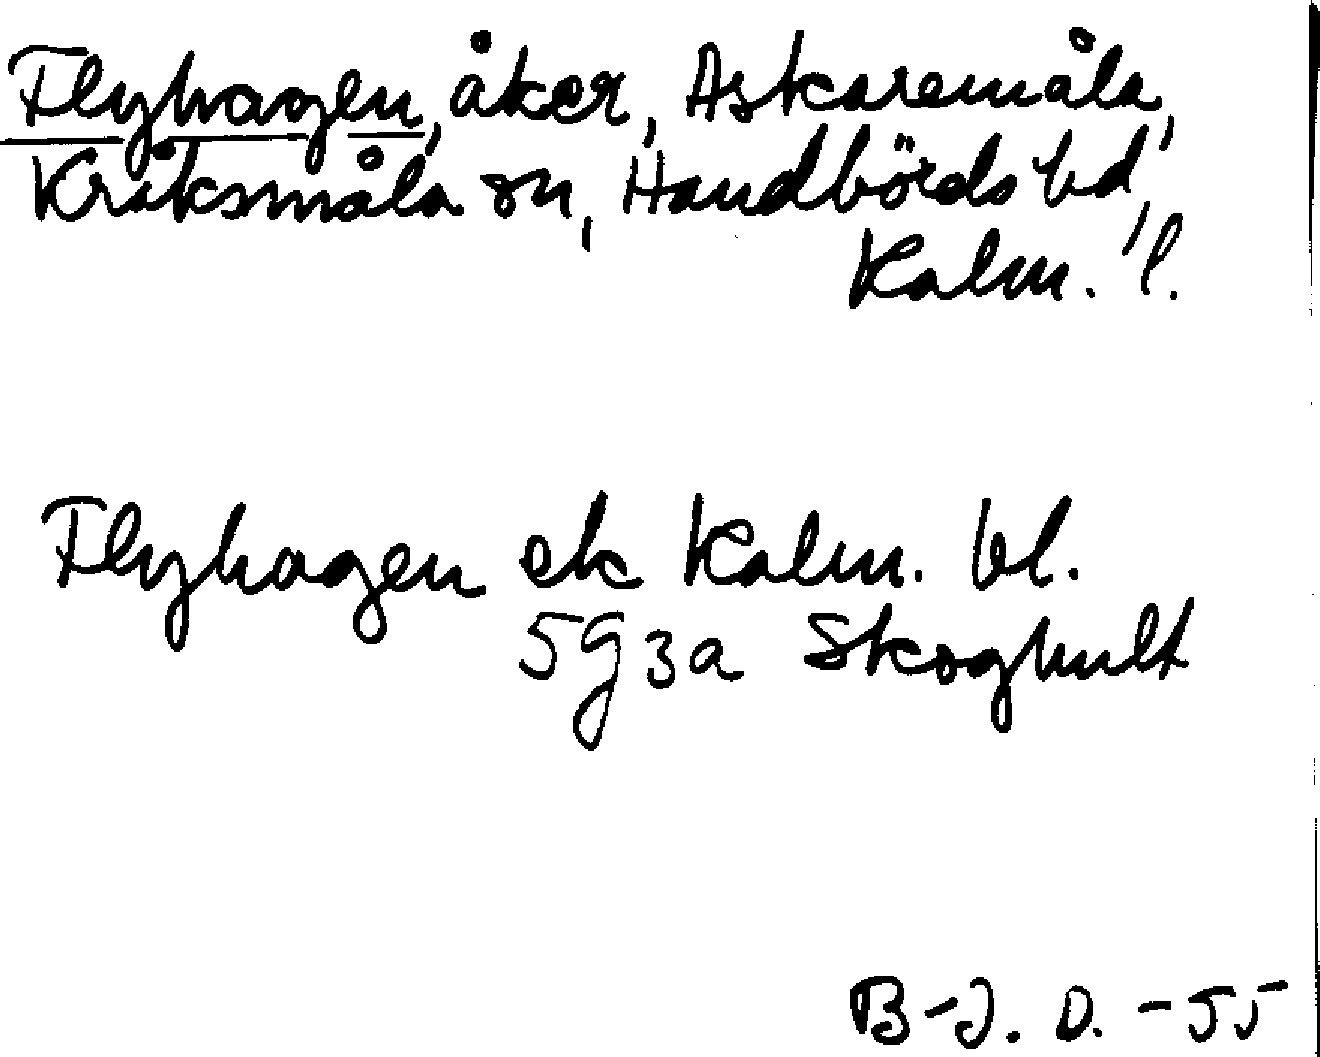 Flyhagen, åker, Askaremåla,
Kråksmåla sn, Handbörds hd,
Kalm. l.
Flyhagen ek Kalm. bl.
5g3a Skoghult
B-J. O. -55